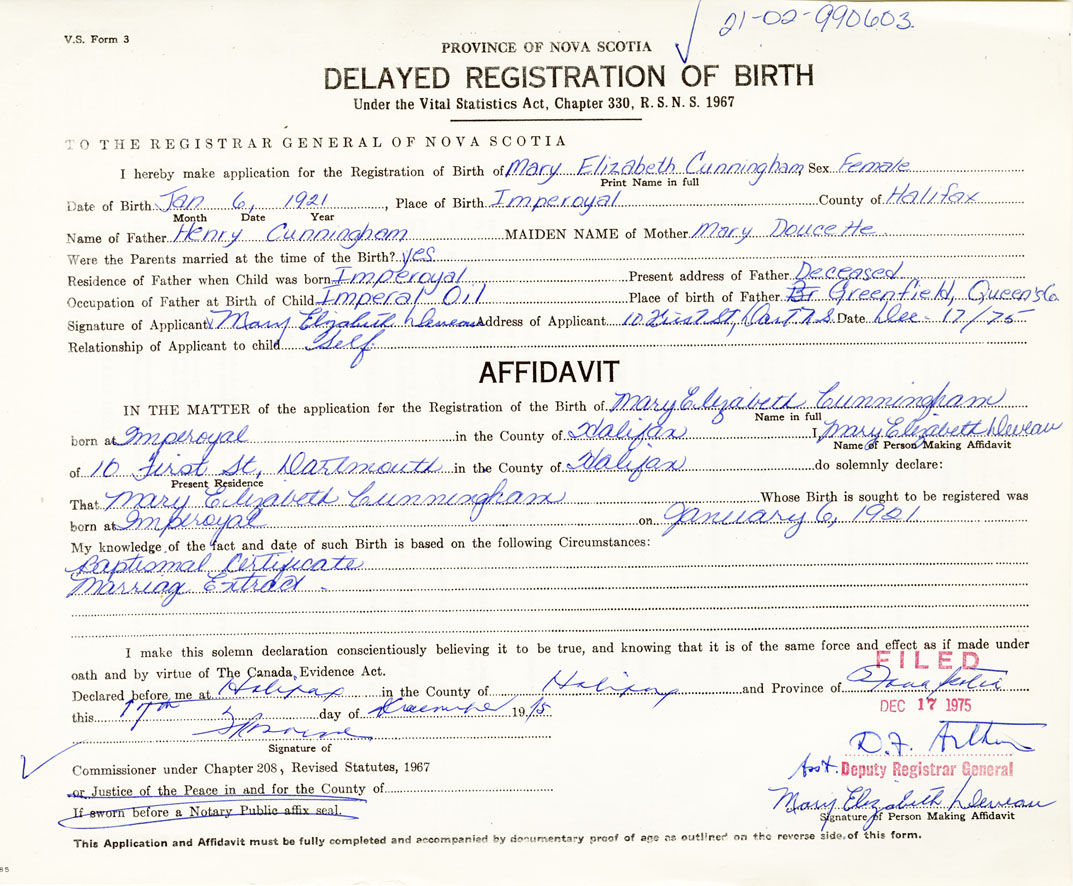 21-02-990603.
V.S. Form 3
PROVINCE OF NOVA SCOTIA
DELAYED REGISTRATION OF BIRTH
Under the Vital Statistics Act, Chapter 330, R.S.N.S. 1967
TO THE REGISTRAR GENERAL OF NOVA SCOTIA
I hereby make application for the Registration of Birth of Mary Elizabeth Cunningham Sex Female
Print Name in full
Date of Birth Jan 6, 1921, Place of Birth Imperoyal County of Halifax
Month Date Year
Name of Father Henry Cunningham MAIDEN NAME of Mother Mary Doucette
Were the Parents married at the time of the Birth? yes
Residence of Father when Child was born Imperoyal Present address of Father Deceased
Occupation of Father at Birth of Child Imperal Oil Place of birth of Father Br Greenfield, Queens Co.
Signature of Applicant Mary Elizabeth Deveau Address of Applicant 10 First St, Dart N.S. Date Dec - 17/75
Relationship of Applicant to child Self
AFFIDAVIT
IN THE MATTER of the application for the Registration of the Birth of Mary Elizabeth Cunningham
Name in full
born at Imperoyal in the County of Halifax I, Mary Elizabeth Deveau
Name of Person Making Affidavit
of 10 First St, Dartmouth in the County of Halifax do solemnly declare:
Present Residence
That Mary Elizabeth Cunningham Whose Birth is sought to be registered was
born at Imperoyal on January 6, 1921
My knowledge of the fact and date of such Birth is based on the following Circumstances:
Baptismal Certificate
Marriag Extract
I make this solemn declaration conscientiously believing it to be true, and knowing that it is of the same force and effect as if made under
oath and by virtue of The Canada Evidence Act.
FILED
Declared before me at Halifax in the County of Halifax and Province of Nova Scotia
DEC 17 1975
this 17th day of December 1975
Signature of
D.F. Arthur
Commissioner under Chapter 208, Revised Statutes, 1967
Asst. Deputy Registrar General
or Justice of the Peace in and for the County of
Mary Elizabeth Deveau
If sworn before a Notary Public affix seal.
Signature of Person Making Affidavit
This Application and Affidavit must be fully completed and accompanied by documentary proof of age as outlined on the reverse side of this form.
85